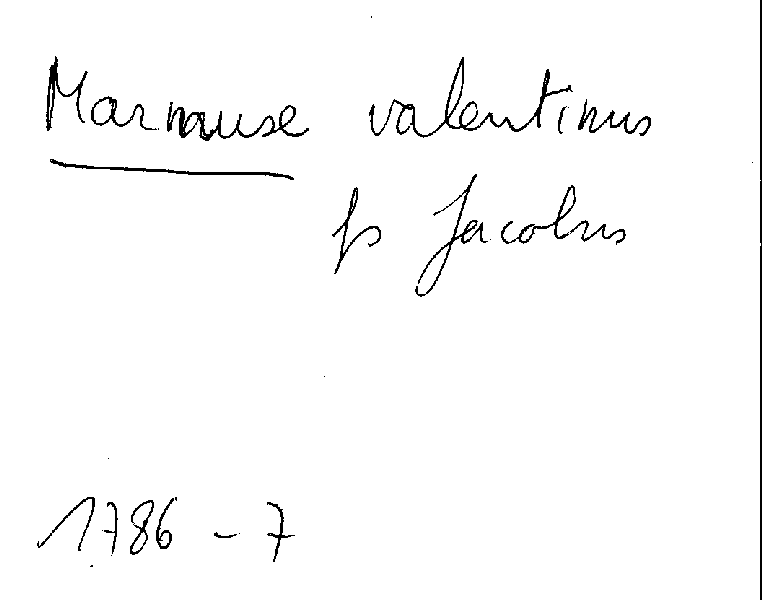 Marnause valentinus
fs Jacobus
1786 - 7